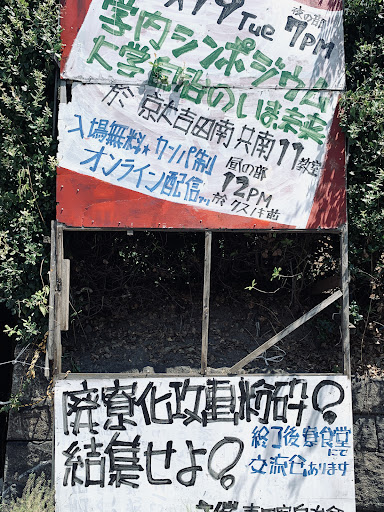 7/9 Tue 夜の部
7PM
学内シンポジウム
大学自治のいま未来
於 京大吉田南 共南11教室
入場無料★カンパ制
オンライン配信アリ
昼の部
12PM
於 クスノキ前
廃寮化攻撃粉砕!
結集せよ!
終了後寮食堂
にて
交流会あります